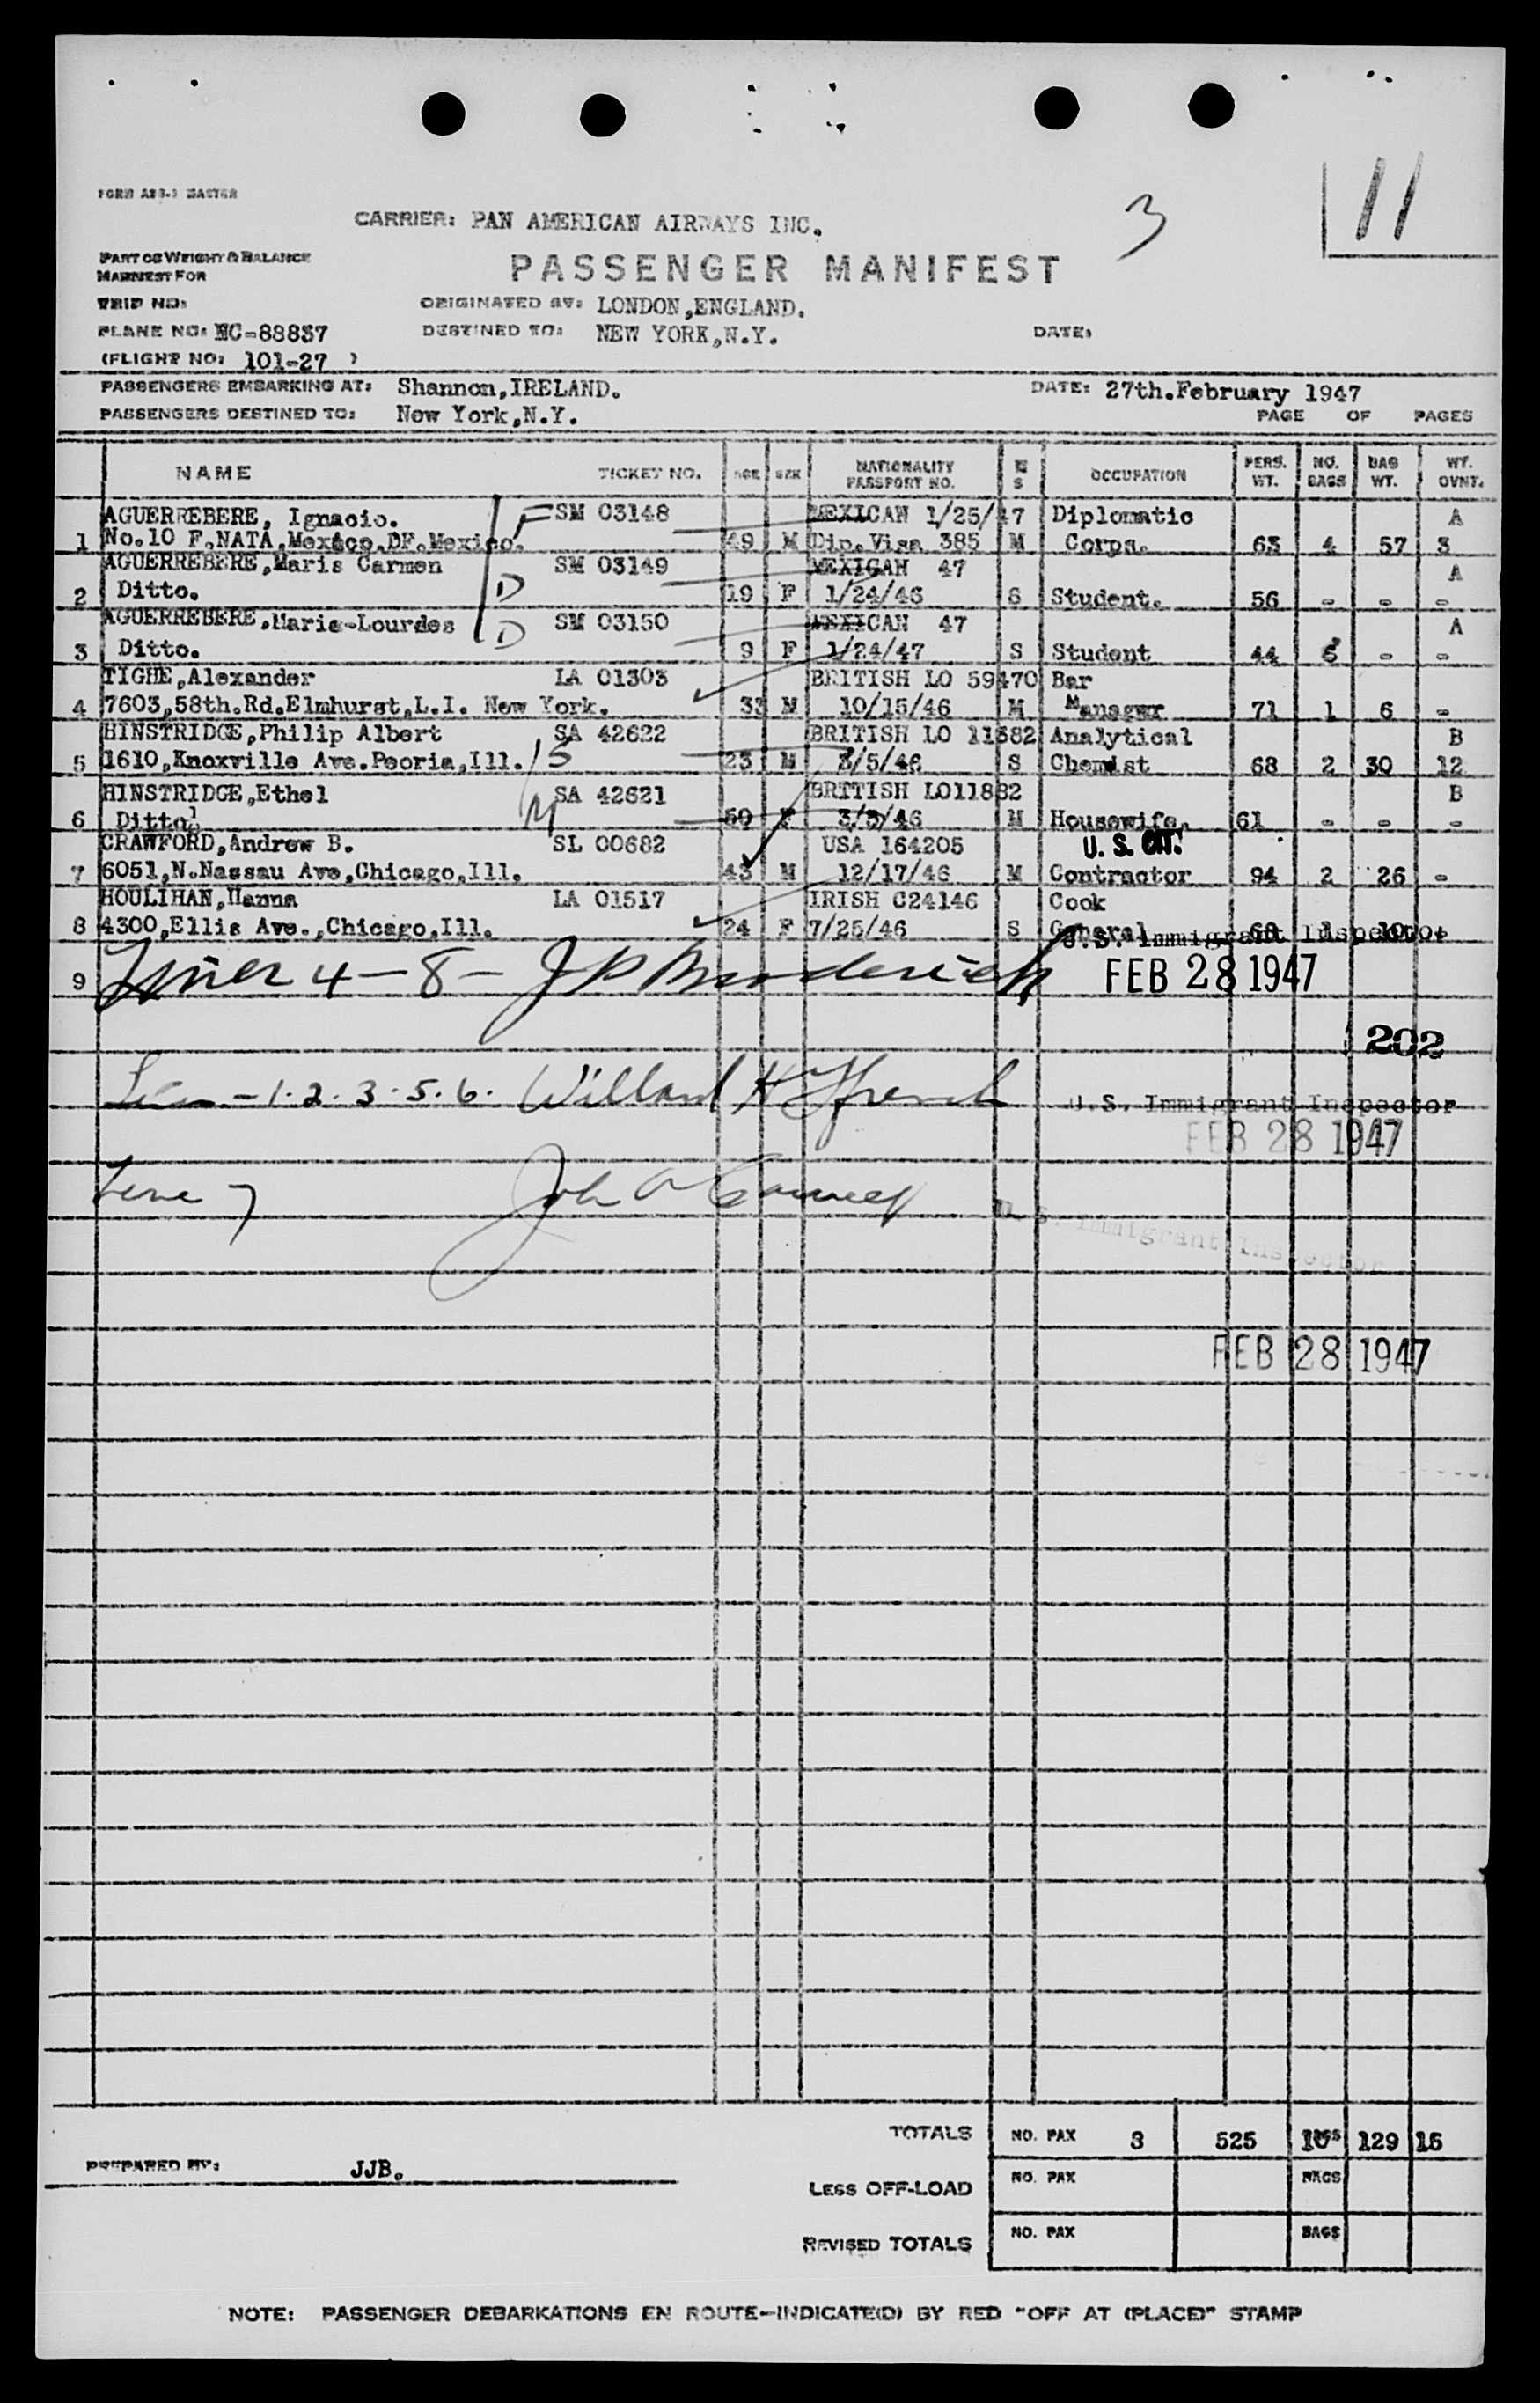 11
3
FORM AS3-1 MASTER
CARRIER: PAN AMERICAN AIRWAYS INC.
PART OF WEIGHT & BALANCE
MANIFEST FOR
PASSENGER MANIFEST
TRIP NO:
ORIGINATED AT: LONDON,ENGLAND.
PLANE NO: NC-88837
DESTINED TO: NEW YORK,N.Y.
DATE:
(FLIGHT NO: 101-27 )
PASSENGERS EMBARKING AT: Shannon,IRELAND.
DATE: 27th.February 1947
PASSENGERS DESTINED TO: New York,N.Y.
PAGE OF PAGES
NAME TICKET NO. AGE SEX NATIONALITY PASSPORT NO. M S OCCUPATION PERS. WT. NO. BAGS BAG WT. WT. OVNT.
AGUERREBERE, Ignacio. F SM 03148 MEXICAN 1/25/47 Diplomatic A
1 No.10 F.NATA,Mexico,DF.Mexico. 49 M Dip.Visa 385 M Corps. 63 4 57 3
AGUERREBERE,Maris Carmen SM 03149 MEXICAN 47 A
2 Ditto. D 19 F 1/24/46 S Student. 56 - - -
AGUERREBERE,Marie-Lourdes D SM 03150 MEXICAN 47 A
3 Ditto. 9 F 1/24/47 S Student 44 - -
TIGHE,Alexander LA 01303 BRITISH LO 59470 Bar
4 7603,58th.Rd.Elmhurst,L.I. New York. 33 M 10/15/46 M Manager 71 1 6 -
HINSTRIDGE,Philip Albert SA 42622 BRITISH LO 11882 Analytical B
5 1610,Knoxville Ave.Peoria,Ill. S 23 M 3/5/46 S Chemist 68 2 30 12
HINSTRIDGE,Ethel SA 42621 BRITISH LO11882 B
6 Ditto M 50 F 3/5/46 M Housewife. 61 - - -
CRAWFORD,Andrew B. SL 00682 USA 164205 U. S. CIT.
7 6051,N.Nassau Ave,Chicago,Ill. 43 M 12/17/46 M Contractor 94 2 26 -
HOULIHAN,Hanna LA 01517 IRISH C24146 Cook
8 4300,Ellis Ave.,Chicago,Ill. 24 F 7/25/46 S General 68 1 10 -
U.S. Immigrant Inspector
9 Lines 4 - 8 - J P Broderick FEB 28 1947
202
Lines - 1.2.3.5.6. Willard H French U.S. Immigrant Inspector
FEB 28 1947
Line 7 John
U.S. Immigrant Inspector
FEB 28 1947
TOTALS NO. PAX 8 525 10 BAGS 129 15
PREPARED BY: JJB.
LESS OFF-LOAD NO. PAX BAGS
REVISED TOTALS NO. PAX BAGS
NOTE: PASSENGER DEBARKATIONS EN ROUTE-INDICATE(D) BY RED "OFF AT (PLACE)" STAMP